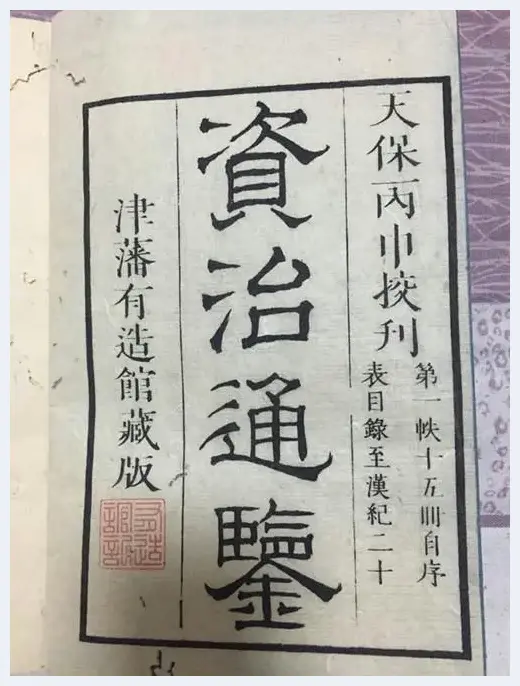 天保丙申挍刊
第一帙十五冊自序
表目錄至漢紀二十
資治通鑒
津藩有造館藏版
有造
館記